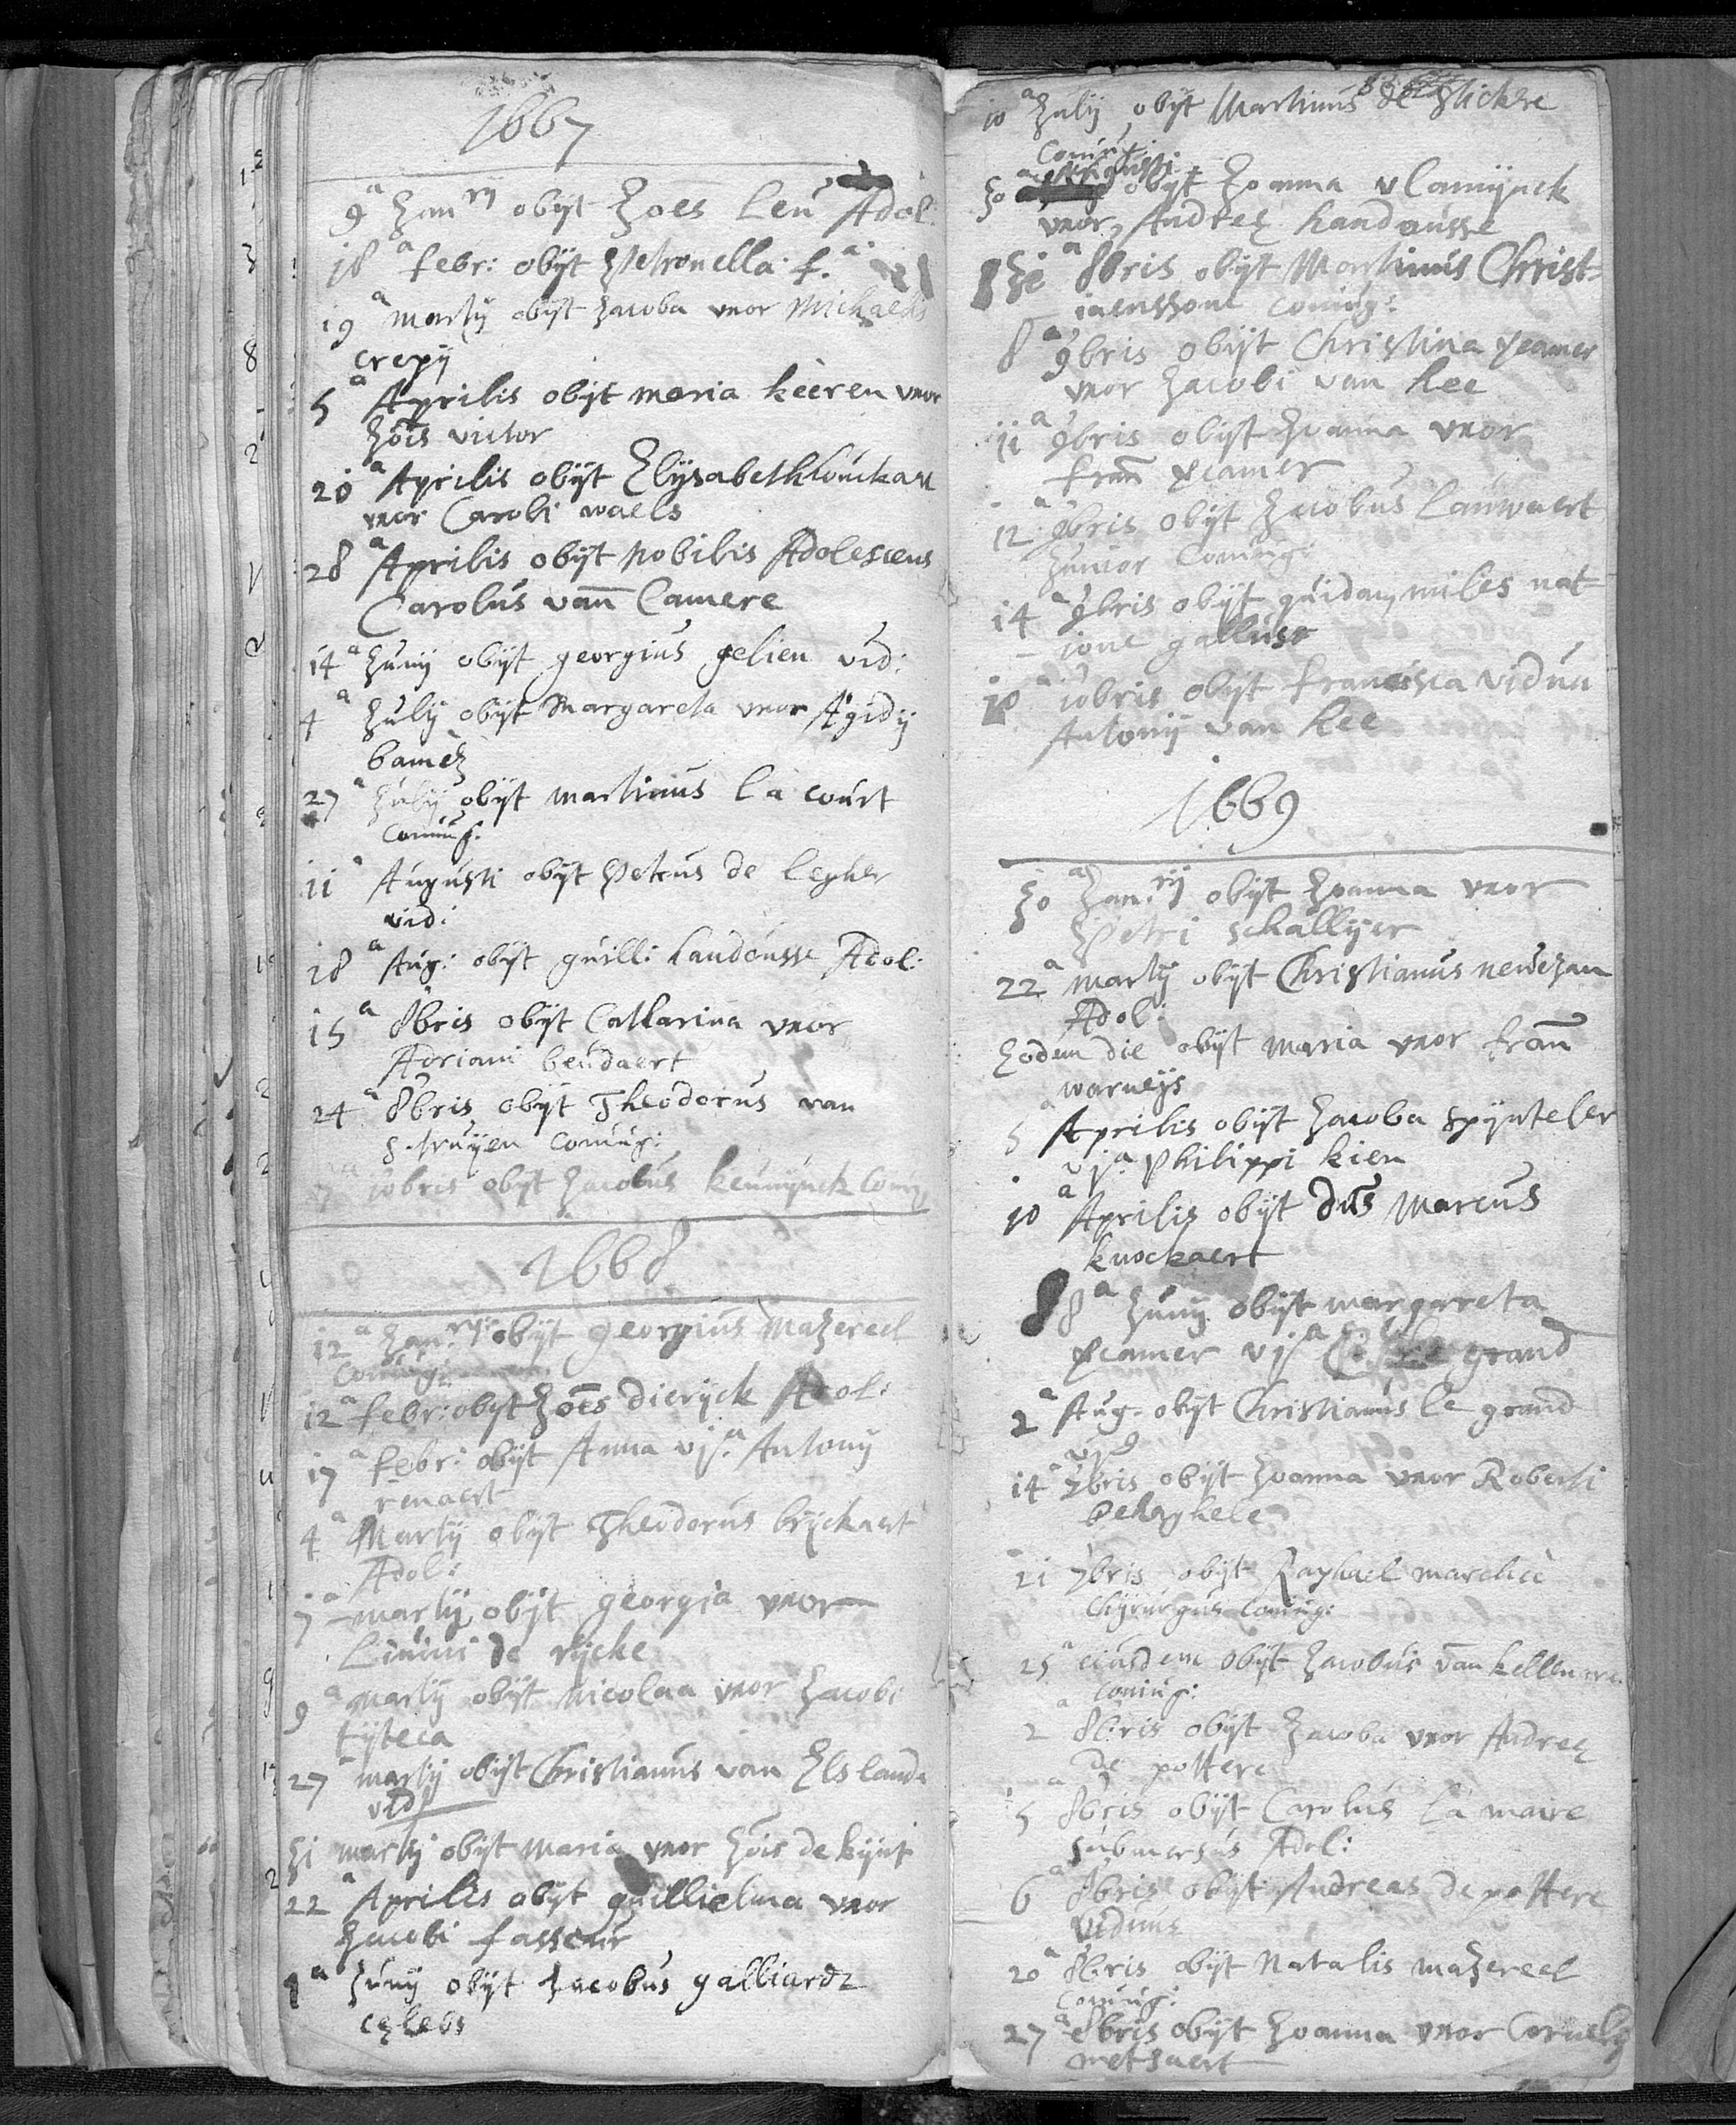 1667
9ᵃ Janʳʸ obijt Joēs leu Adol:
18ᵃ febr: obijt Petronella f.ᵃ
19ᵃ martij obijt Jacoba uxor Michaelis
crepij
5ᵃ Aprilis obijt maria keeren uxor
Joīs victor
20ᵃ Aprilis obijt Elijsabeth
uxor Caroli waels
28ᵃ Aprilis obijt nobilis Adolescens
Carolus van Camere
14ᵃ Junij obijt georgius gelien vid:
4ᵃ Julij obijt Margareta uxor Ægidij
bamez
27ᵃ Julij obijt martinus la court
coniug:
11ᵃ Augusti obijt Petrus de legher
vid:
18ᵃ Aug: obijt guill: handousse Adol:
15ᵃ 8bris obijt Catharina uxor
Adriani beudaert
24ᵃ 8bris obijt Theodorus van
struijen coniug:
7ᵃ 10bris obijt Jacobus keunijnck coniug
1668
12ᵃ Janʳʸ: obijt georgius mazereel
coniug:
12ᵃ febr: obijt Joēs dierijck Adol:
17ᵃ febr: obijt Anna vjᵃ Antonij
renaert
4ᵃ Martij obijt Theodorus brijckaert
Adol:
7ᵃ martij obijt georgia uxor
Liuini de rijcke
9ᵃ martij obijt nicolaa uxor Jacobi
tijteca
27ᵃ martij obijt Christianus van Elslande
vid
31 martij obijt maria uxor Joīs de kijnt
22ᵃ Aprilis obijt guillielma uxor
Jacobi fasseur
1ᵃ Junij obijt Jacobus galliardt
celebs
10ᵃ Julij obijt Martinus de Stickere
Coniug:
30ᵃ Augusti obijt Joanna vlamijnck
uxor Andreæ handousse
31ᵃ 8bris obijt Martinus Christ=
iaenssone coniug:
8ᵃ 9bris obijt Christina peamer
uxor Jacobi van hee
11ᵃ 9bris obijt Joanna uxor
fran peamer
12ᵃ 9bris obijt Jacobus lauwaert
Junior coniug:
14ᵃ 9bris obijt quidam miles nat=
ione gallus
10ᵃ 10bris obijt francisca vidua
Antonij van hee
1669
30ᵃ Janʳⁱʲ obijt Joanna uxor
Petri schallijer
22ᵃ martij obijt Christianus neuejan
Adol:
Eodem die obijt maria uxor fran
warneijs
5ᵃ Aprilis obijt Jacoba spijnteler
vjᵃ Philippi kien
10ᵃ Aprilis obijt dūs Marcus
knockaert
8ᵃ Junij obijt margareta
peamer vjᵃ grand
2ᵃ Aug. obijt Christianus le grand
vjd
14ᵃ 7bris obijt Joanna uxor Roberti
belleghele
21 7bris obijt Raphael
Chijrurgus coniug:
25ᵃ eiusdem obijt Jacobus van
coniug:
2ᵃ 8bris obijt Jacoba uxor Andreæ
de pottere
5ᵃ 8bris obijt Carolus la maire
submersus Adol:
6ᵃ 8bris obijt Andreas de pottere
viduus
20ᵃ 8bris obijt natalis mazereel
coniug:
27ᵃ 8bris obijt Joanna uxor Cornelij
metsaert